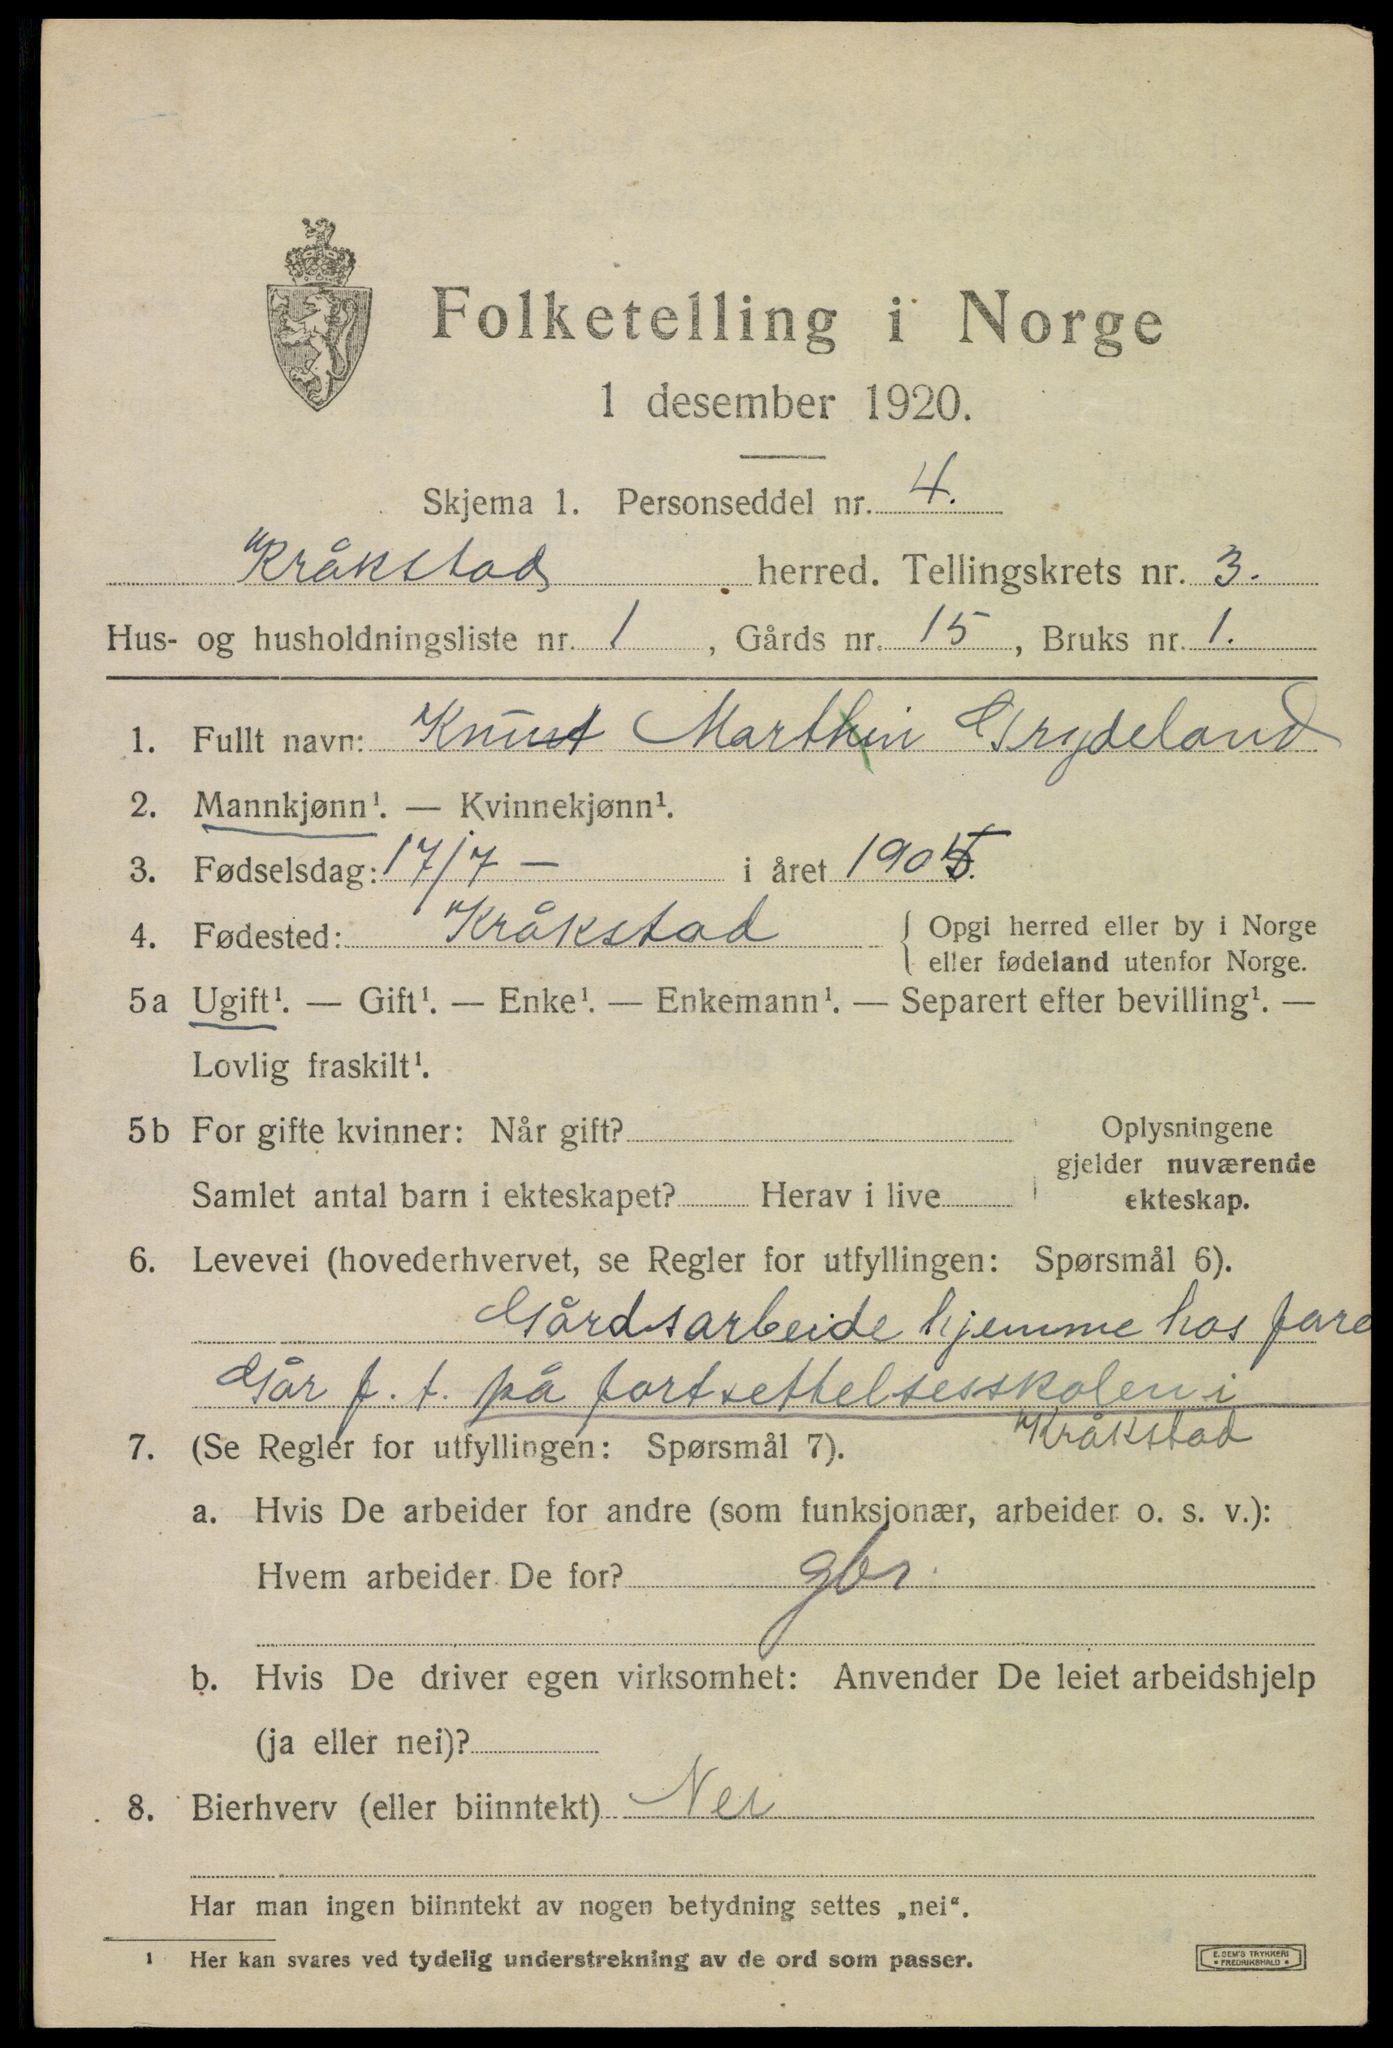 Folketelling i Norge
1 desember 1920.
Skjema 1. Personseddel nr. 4.
Kråkstad herred. Tellingskrets nr. 3.
Hus- og husholdningsliste nr. 1, Gårds nr. 15, Bruks nr. 1.
1. Fullt navn: Knut Marthin Grydeland
2. Mannkjønn¹. — Kvinnekjønn¹.
3. Fødselsdag: 17/7 — i året 1905.
4. Fødested: Kråkstad { Opgi herred eller by i Norge
eller fødeland utenfor Norge.
5a Ugift¹. — Gift¹. — Enke¹. — Enkemann¹. — Separert efter bevilling¹. —
Lovlig fraskilt¹.
5b For gifte kvinner: Når gift?
Samlet antal barn i ekteskapet? Herav i live
Oplysningene
gjelder nuværende
ekteskap.
6. Levevei (hovederhvervet, se Regler for utfyllingen: Spørsmål 6).
Gårdsarbeide hjemme hos fare
Går f. t. på fortsettelsesskolen i
Kråkstad
7. (Se Regler for utfyllingen: Spørsmål 7).
a. Hvis De arbeider for andre (som funksjonær, arbeider o. s. v.):
Hvem arbeider De for? gbr.
b. Hvis De driver egen virksomhet: Anvender De leiet arbeidshjelp
(ja eller nei)?
8. Bierhverv (eller biinntekt) Nei
Har man ingen biinntekt av nogen betydning settes „nei“.
¹ Her kan svares ved tydelig understrekning av de ord som passer.
E. SEM'S TRYKKERI
* FREDRIKSHALD *